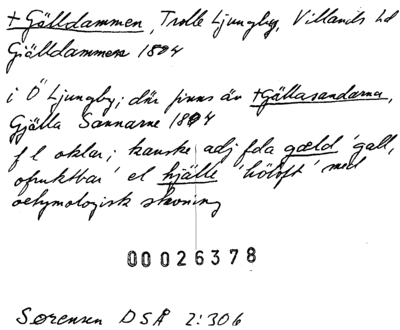 + Gälldammen, Trolle Ljungby, Villands hd
Gjälldammen 1804
i Ö Ljungby; där finns äv +Gällasandarna,
Gjälla Sannarne 1804
f l oklar; kanske adj fda gæld 'gall,
ofruktbar' el hjälle 'höloft' med
oetymologisk skrivning
00026378
Sørensen DSÅ 2:306